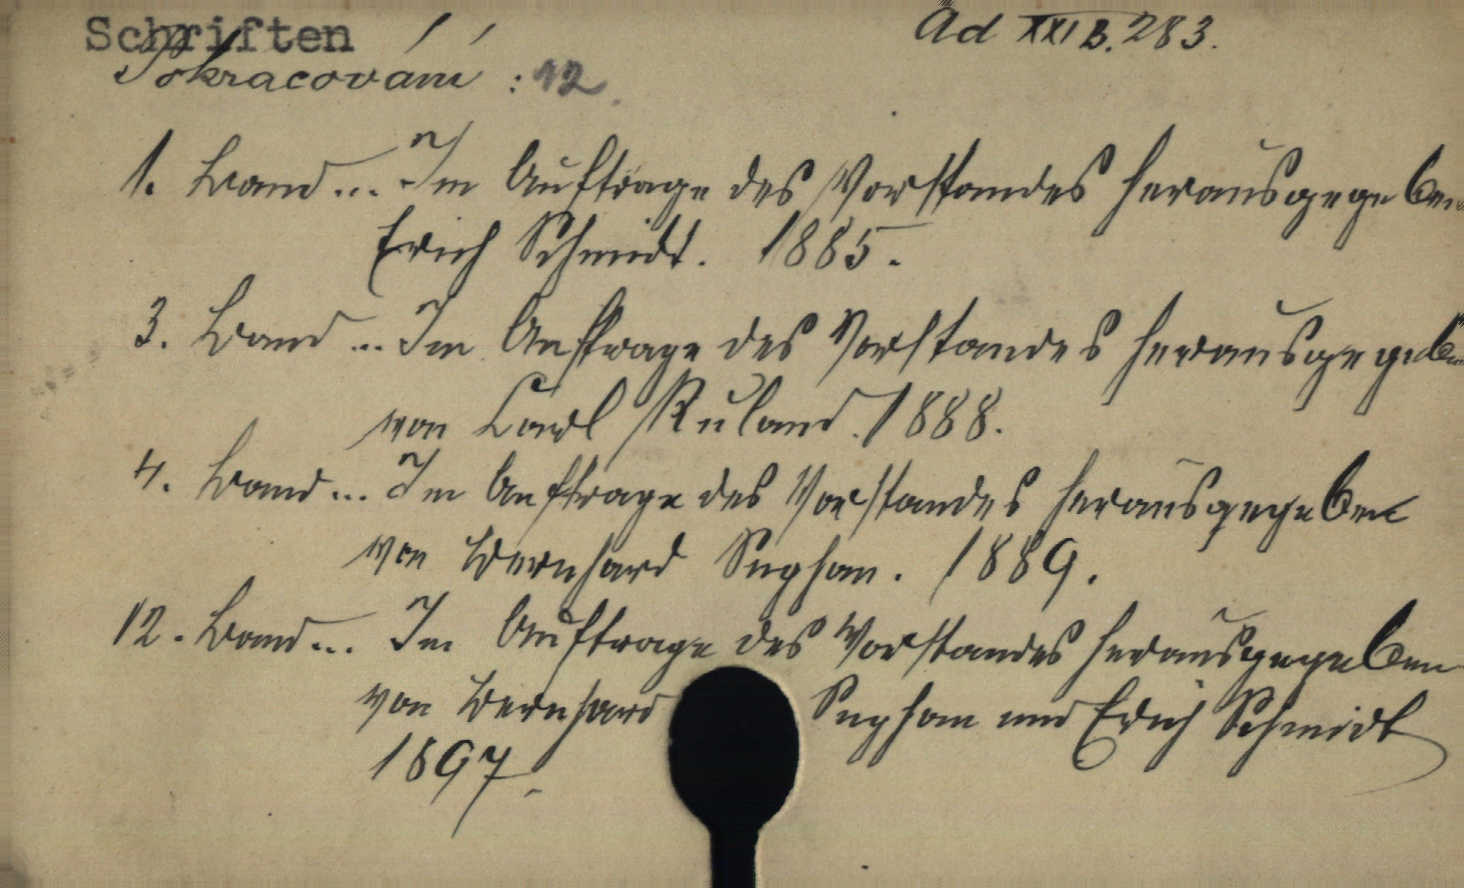 Schriften
Ad XXI B. 283.
Pokracování : 12.
1. Band... Im Auftrage des Vorstandes herausgegeben
Erich Schmidt. 1885.
3. Band... Im Auftrage des Vorstandes herausgegeben
von Carl Ruland. 1888.
4. Band... Im Auftrage des Vorstandes herausgegeben
von Bernhard Suphan. 1889.
12. Band... Im Auftrage des Vorstandes herausgegeben
von Bernhard Suphan und Erich Schmidt
1897.